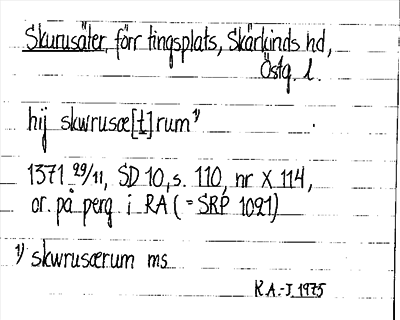 Skurusäter, förr tingsplats, Skärkinds hd,
Östg. l.
hij skwrusæ[t]rum¹⁾
1371 29/11, SD 10, s. 110, nr X 114,
or. på perg i RA (= SRP 1021)
¹⁾ skwrusærum ms
R.A.-J. 1975